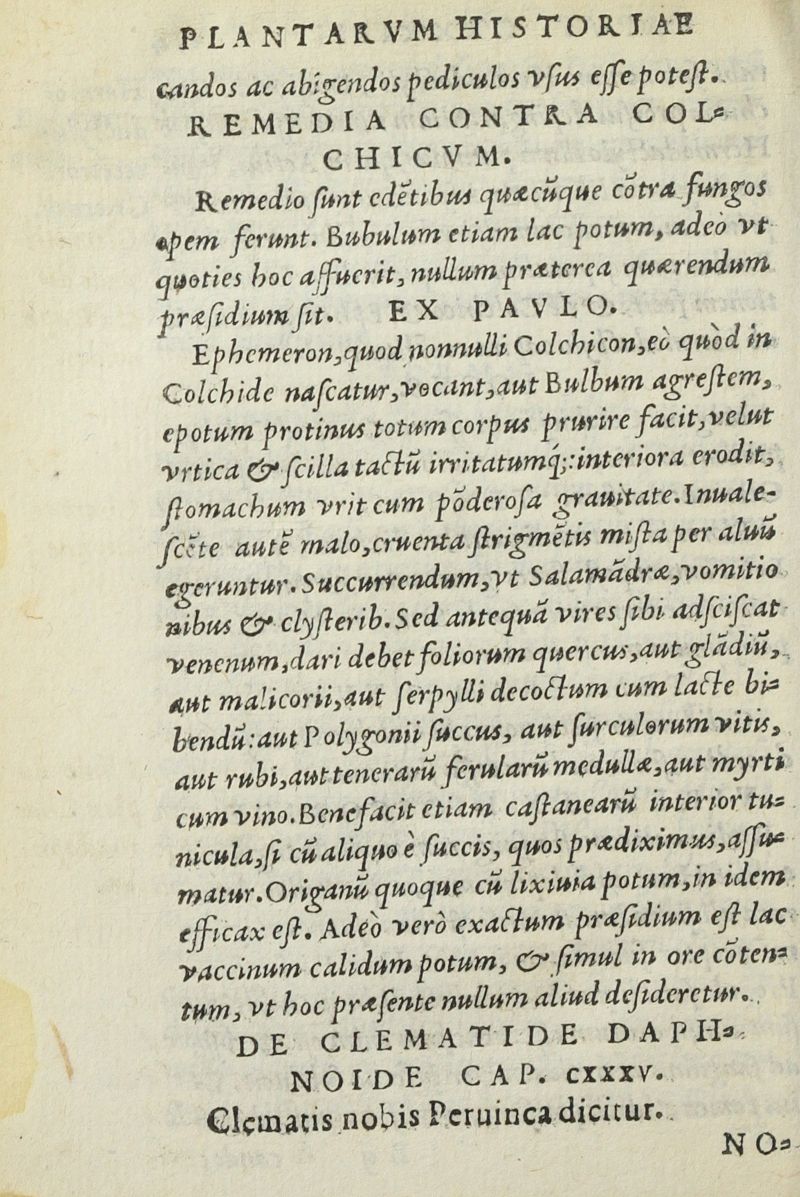 PLANTARVM HISTORIAE
candos ac abigendos pediculos vſus eſſe poteſt.
REMEDIA CONTRA COL-
CHICVM.
Remedio ſunt edẽtibus quæcũque cõtra fungos
opem ferunt. Bubulum etiam lac potum, adeò vt
quoties hoc affuerit, nullum præterea quærendum
præſidium ſit. EX PAVLO.
Ephemeron, quod nonnulli Colchicon, eò quòd in
Colchide naſcatur, vocant, aut Bulbum agreſtem,
epotum protinus totum corpus prurire facit, velut
vrtica & ſcilla tactũ irritatumq́;: interiora erodit,
ſtomachum vrit cum põderoſa grauitate. Inuale-
ſcẽte autẽ malo, cruenta ſtrigmẽtis miſta per aluũ
egeruntur. Succurrendum, vt Salamãdræ, vomitio
nibus & clyſterib. Sed antequã vires ſibi adſciſcat
venenum, dari debet foliorum quercus, aut glãdiũ,
aut malicorii, aut ſerpylli decoctum cum lacte bi-
bendũ: aut Polygonii ſuccus, aut ſurculorum vitis,
aut rubi, aut tenerarũ ferularũ medullæ, aut myrti
cum vino. Benefacit etiam caſtanearũ interior tu-
nicula, ſi cũ aliquo è ſuccis, quos prædiximus, aſſu-
matur. Origanũ quoque cũ lixiuia potum, in idem
efficax eſt. Adeò verò exactum præſidium eſt lac
vaccinum calidum potum, & ſimul in ore cõten-
tum, vt hoc præſente nullum aliud deſideretur.
DE CLEMATIDE DAPH-
NOIDE CAP. CXXXV.
Clematis nobis Peruinca dicitur.
NO-